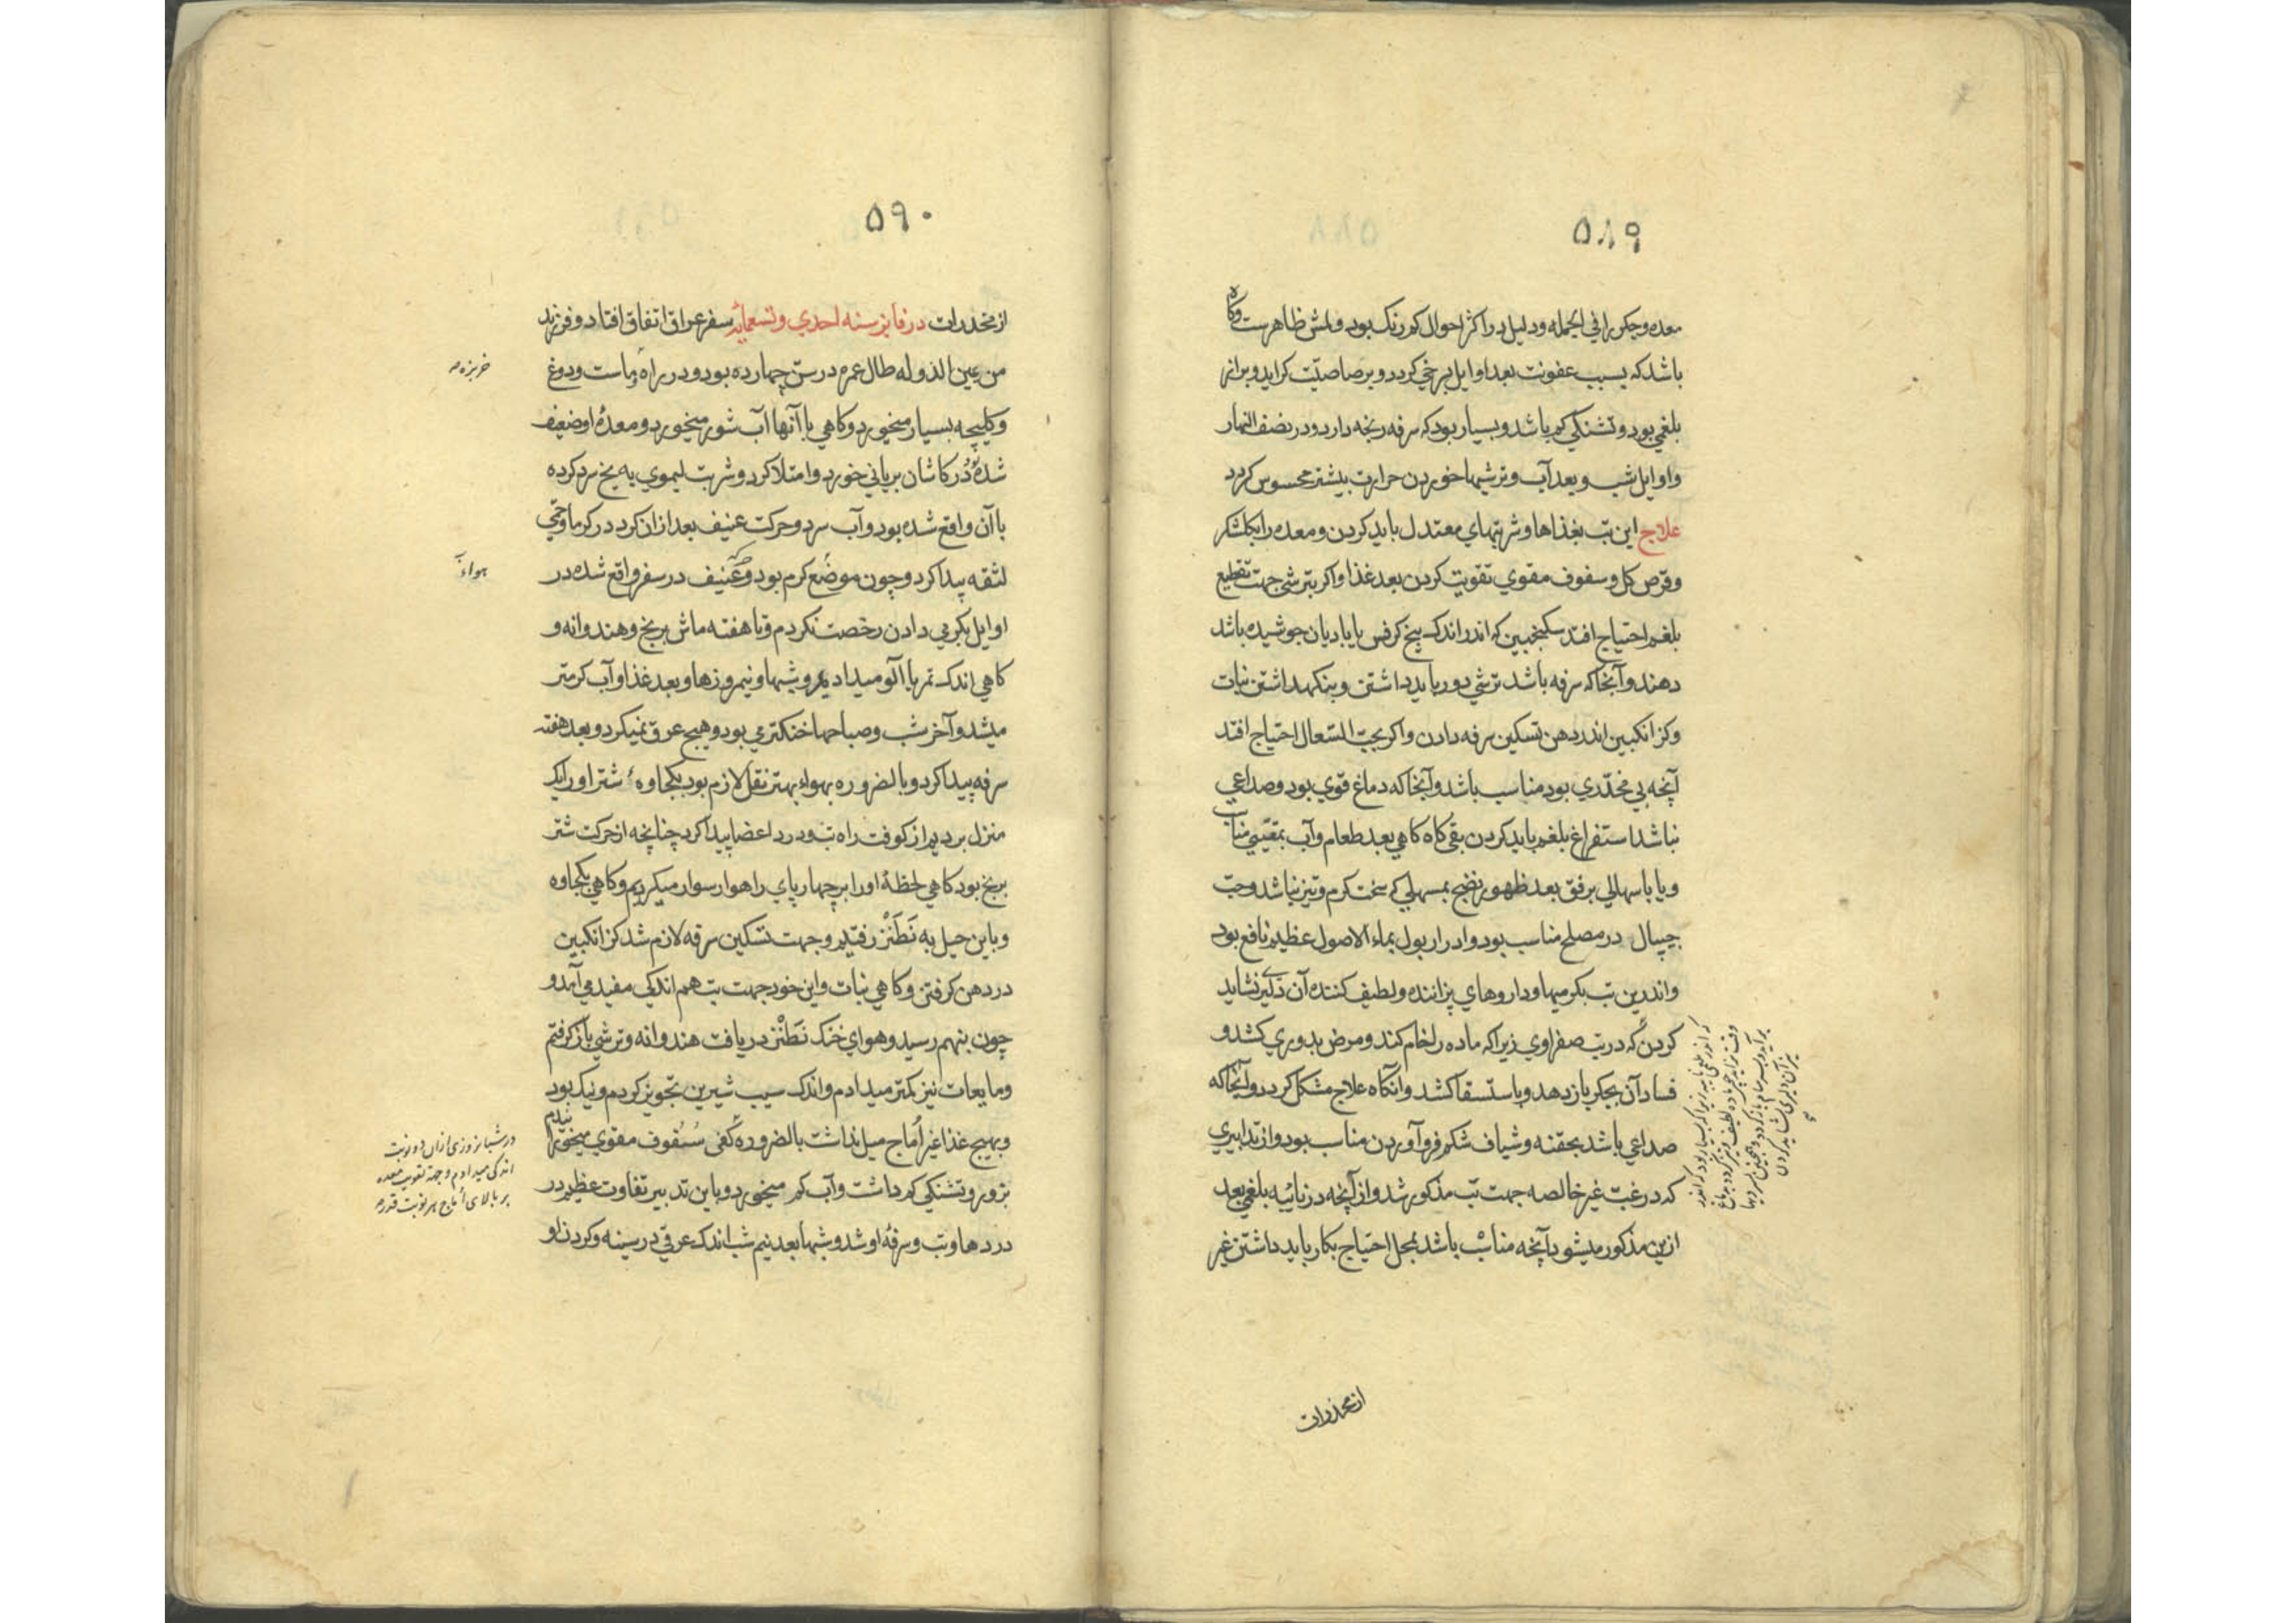 ۵۸۹
معده وجکر را في الجمله ودليل در اکثر احوال کم رنک بود ولمش ظاهرست وکاه
باشد که بسبب عفونت بعد اوايل بسرخي کردد وبرصاصيّت کرايد وبراز
بلغمي بود وتشنکي کم باشد وبسيار بود که سرفه رنجه دارد ودر نصف النهار
واوايل شب وبعد آب وترشيها خوردن حرارت بيشتر محسوس کردد
علاج اين تب بغذاها وشربتهاي معتدل بايد کردن ومعده را بکلشکر
وقرص کل وسفوف مقوي تقويت کردن بعد غذا واکر بترشي جهت تقطيع
بلغم احتياج افتد سکنجبين که اندر اندک بيخ کرفس يا باديان جوشيده باشد
دهند وآنجا که سرفه باشد ترشي دور بايد داشتن وبنکهداشتن نبات
وکزانکبين اندر دهن تسکين سرفه دادن واکر بحبّ السّعال احتياج افتد
آنچه بي مخدّري بود مناسب باشد وآنجا که دماغ قوي بود وصداعي
نباشد استفراغ بلغم بايد کردن بقي کاه کاهي بعد طعام وآب بمقيّي مناسب
ويا باسهالي برفق بعد ظهور نضج بمسهلي که سخت کرم وتيز نباشد وحبّ
جيپال در مصلح مناسب بود وادرار بول بماء الاصول عظيم نافع بود
واندرين تب بکرميها وداروهاي پزاننده ولطيف کننده آن دليري نشايد
کردن که در تب صفراوي زيرا که ماده را خام کند ومرض بدوري کشد و
فساد آن بجکر باز دهد وباستسقا کشد وانکاه علاج مشکل کردد وآنجا که
صداعي باشد بحقنه وشياف شکم فرو آوردن مناسب بود واز تدابيري
که در غبّ غير خالصه جهت تب مذکور شد واز آنچه در نائبه بلغمي بعد
ازين مذکور ميشود آنچه مناسب باشد بمحل احتياج بکار بايد داشتن غير
از مخدرات
۵۹۰
از مخدرات در فايز سنه احدي وتسعمائه سفر عراق اتفاق افتاد وفرزند
من عين الدوله طال عمره در سنّ چهارده بود ودر راه ماست ودوغ
خربزه
وکليچه بسيار ميخورد وکاهي با آنها آب شور ميخورد ومعدهٔ او ضعيف
شده در کاشان برياني خورد وامتلا کرد وشربت ليموي به يخ سرد کرده
با آن واقع شده بود وآب سرد وحرکت عنيف بعد از ان کرد در کرما وحمّي
لثقه پيدا کرد وچون موضع کرم بود وحرکت عنيف در سفر واقع شده در
هواء
اوايل بکرمي دادن رخصت نکردم وتا هفته ماش برنج وهندوانه و
کاهي اندک تمر با آلو ميداديم وشبها ونيمروزها وبعد غذا وآب کرمتر
ميشد وآخر شب وصباحها خنکتر مي بود وهيچ عرق نميکرد وبعد هفته
سرفه پيدا کرد وبالضروره بهواء بهتر نقل لازم بود بکجاوهٔ شتر او را يک
منزل برديم از کوفت راه تب ودرد اعضا پيدا کرد چنانچه از حرکت شتر
برنج بود کاهي لحظهٔ او را بر چهارپاي راهوار سوار ميکرديم وکاهي بکجاوه
وباين حيل به نَطَنْز رفتيم وجهت تسکين سرفه لازم شد کزانکبين
در دهن کرفتن وکاهي نبات واين خود جهت تب هم اندکي مفيد مي آمد و
چون بنهم رسيد وهواي خنک نَطَنْز دريافت هندوانه وترشي باز کرفتم
ومايعات نيز کمتر ميدادم واندک سيب شيرين تجويز کردم ونيک بود
وبهيچ غذا غير اُماج ميل نداشت بالضروره کفي سفوف مقوي ميخورانيدم
در شبانروزي ازان دو نوبت
اندکي ميدادم وجهة تقويت معده
بر بالاي اُماج هر نوبت قدر
بزور وتشنکي کم داشت وآب کم ميخورد وباين تدبير تفاوت عظيم در
دردها وتب وسرفهٔ او شد وشبها بعد نيم شب اندک عرقي در سينه وکردن او